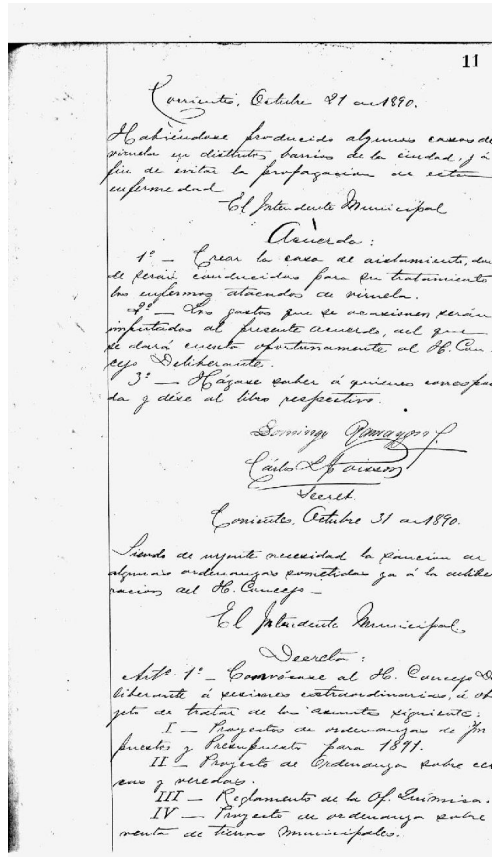 11
Corrientes, Octubre 21 de 1890.
Habiéndose producido algunos casos de
viruela en distintos barrios de la ciudad, y á
fin de evitar la propagacion de esta
enfermedad
El Intendente Municipal
Acuerda:
1º — Crear la casa de aislamiento, don
de serán conducidos para su tratamiento
los enfermos atacados de viruela.
2º — Los gastos que se ocasionen serán
imputados al presente acuerdo, del que
se dará cuenta oportunamente al H. Con-
cejo Deliberante.
3º — Hágase saber á quienes correspon
da y dése al libro respectivo.
Domingo
Cárlos
Secret.
Corrientes, Octubre 31 de 1890.
Siendo de urgente necesidad la sancion de
algunas ordenanzas sometidas ya á la delibe
racion del H. Concejo —
El Intendente Municipal
Decreta:
Artº 1º — Convócase al H. Concejo De
liberante á sesiones extraordinarias, á ob
jeto de tratar de los asuntos siguientes:
I — Proyectos de ordenanzas de Im
puestos y Presupuesto para 1891.
II — Proyecto de Ordenanza sobre cer
cos y veredas.
III — Reglamento de la Of. Química.
IV — Proyecto de ordenanza sobre
venta de tierras municipales.